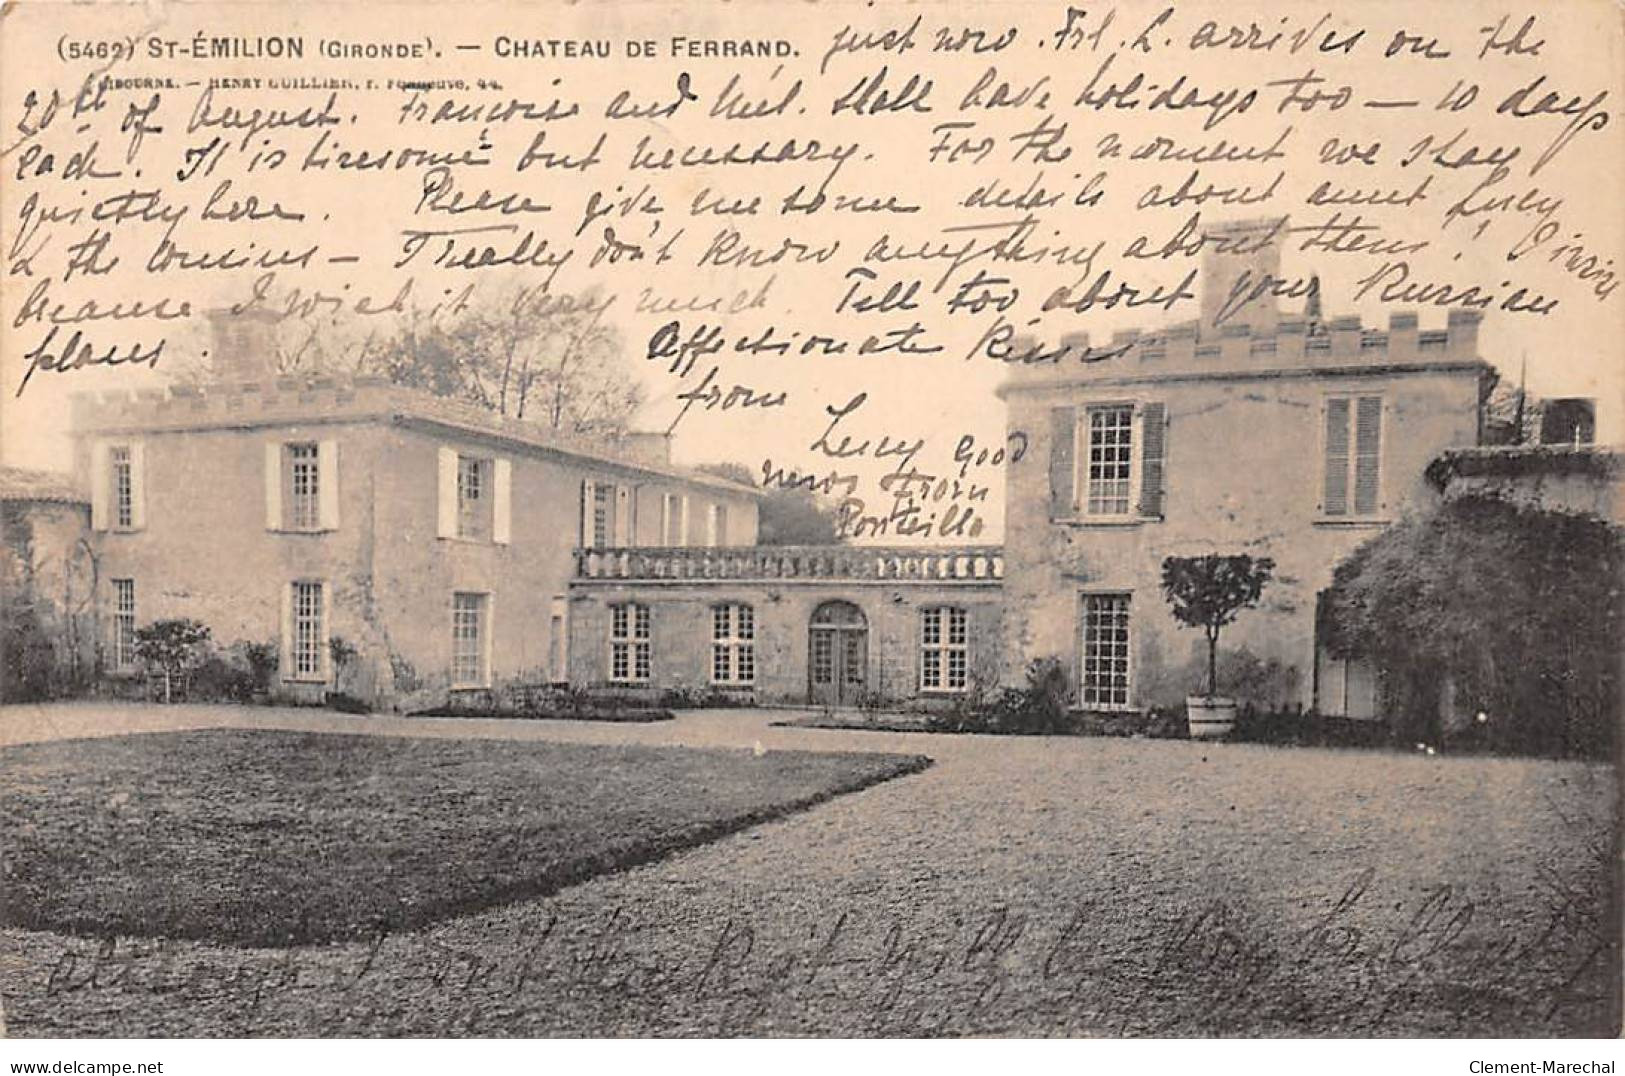 (5462) ST-ÉMILION (GIRONDE). — CHATEAU DE FERRAND.
LIBOURNE. — HENRY GUILLIER, r. Fonneuve, 44.
just now. Frl. L. arrives on the
20th of August. Françoise and Mel. shall have holidays too — 10 days
each. It is tiresome but necessary. For the moment we stay
quietly here. Please give me some details about aunt Lucy
& the cousins — I really don't know anything about them!
because I wish it very much. Tell too about your Russian
plans.
Affectionate Kisses
from
Lucy Good
news from
although I don't think it will be very